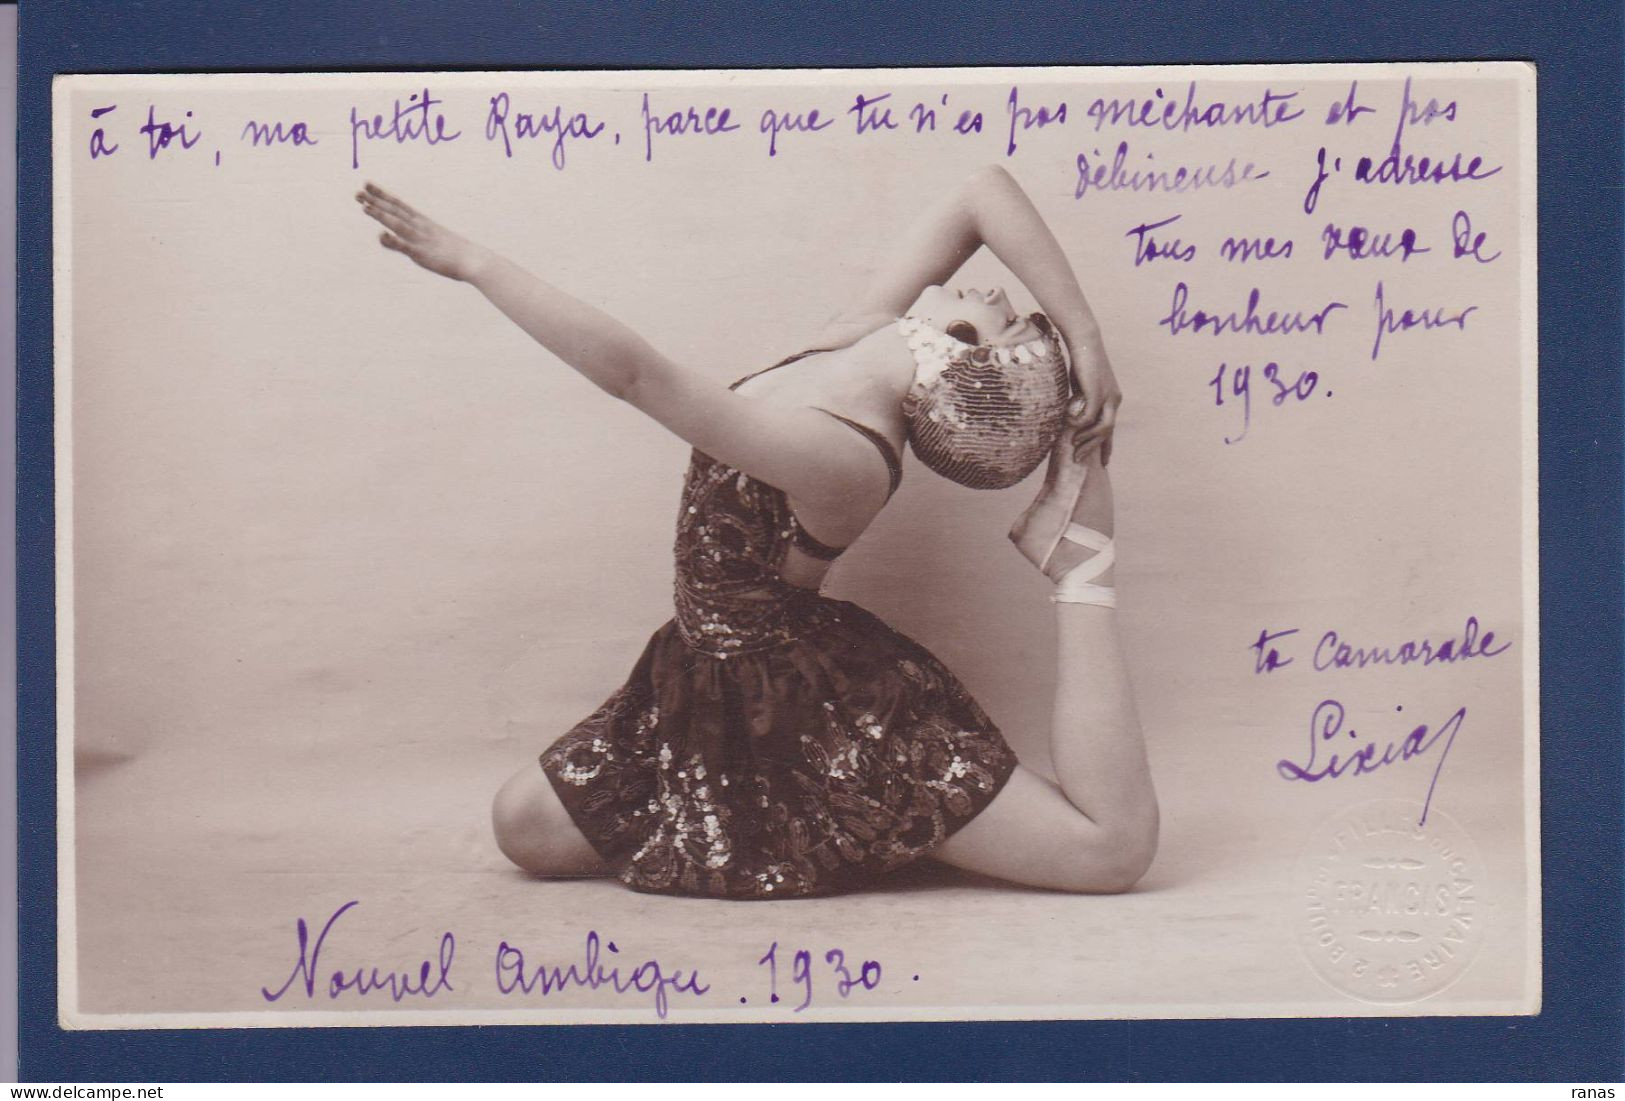 à toi, ma petite Raya, parce que tu n'es pas méchante et pas
débineuse j'adresse
tous mes vœux de
bonheur pour
1930.
ta camarade
Lixia
Nouvel Ambigu . 1930 .
FRANCIS
2 BOUL. FILLES DU CALVAIRE
ranas